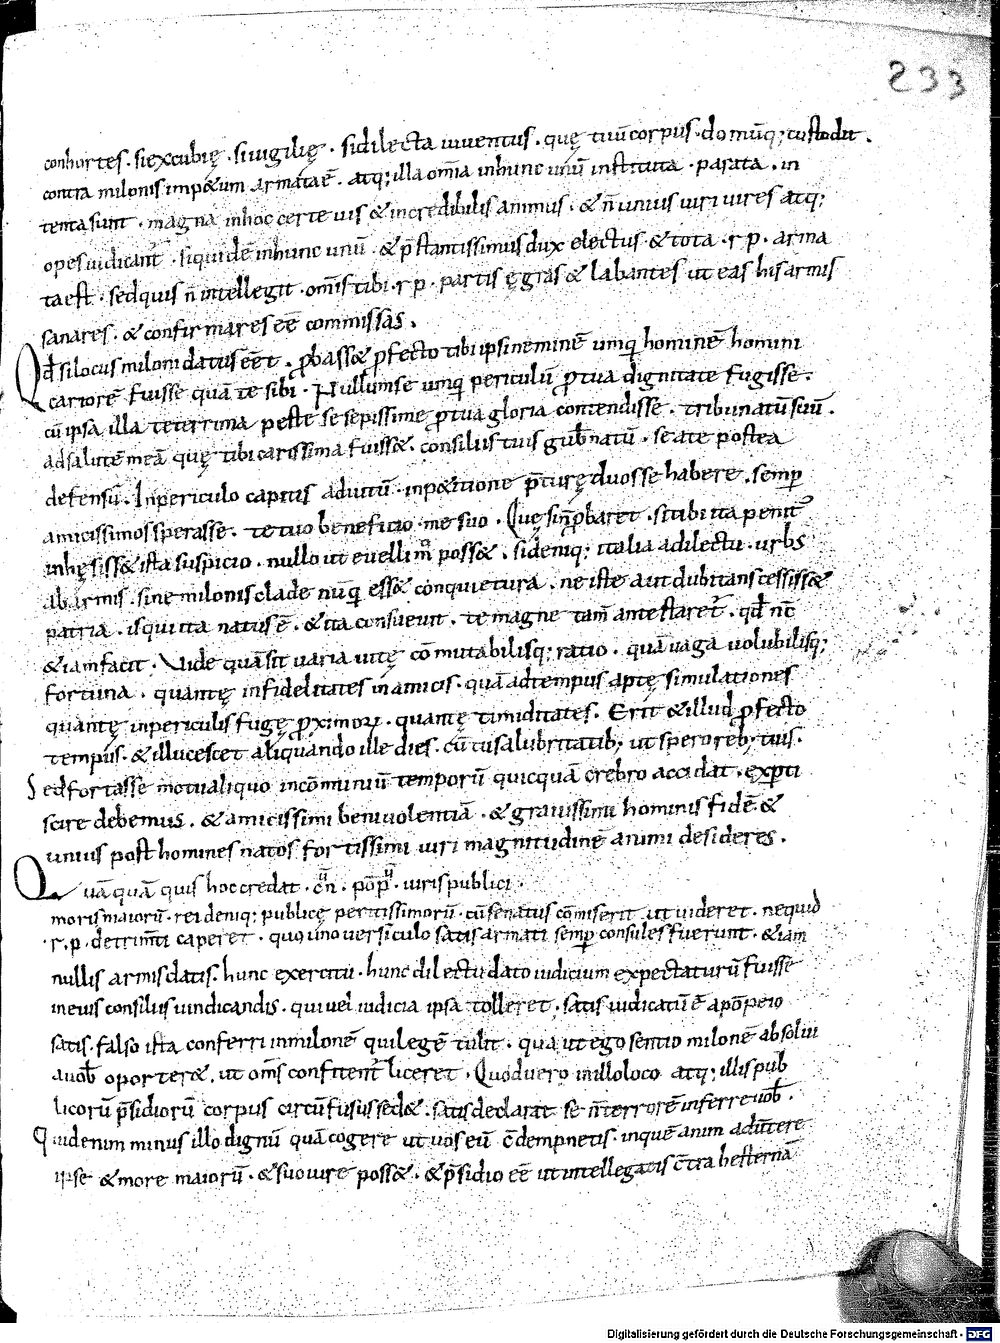 233
conhortes · siexcubię · siuigilię · sidilecta iuuentus · quę tuū corpus · domūq; custodit ·
contra milonis impetum armata ē · atq; illa omīa inhunc unū instituta · parata · in
tenta sunt · magna inhoc certe uis & incredibilis animus · & ñ unius uiri uires atq;
opes iudicant̄ · siquidē inhunc unū · & p̄stantissimus dux electus & tota · r p · arma
ta est · sed quis ñ intellegit · om̄is tibi · r p · partis ęgras & labantes ut eas his armis
sanares · & confirmares eē commissas ·
Qd̄ si locus miloni datus eēt · ꝓbass& ꝓfecto tibi ipsi neminē umq̄ hominē homini
cariorē fuisse quā te sibi · Nullum se umq̄ periculū ꝓ tua dignitate fugisse ·
cū ipsa illa teterrima peste se sepissime ꝓ tua gloria contendisse · tribunatū suū ·
ad salutē meā quę tibi carissima fuiss& · consiliis tuis gub̄natū · se a te postea
defensū · Inpericulo capitis adiutū · inp&itione p̄turę duos se habere · semp̄
amicissimos sperasse · te tuo beneficio · me suo · Quę si ñ ꝓbaret · si tibi ita penit᾽
inhęsiss& ista suspicio · nullo ut euelli m̊ poss& · si deniq; italia adilectu · urbs
ab armis · sine milonis clade nūq̄ ess& conquietura · ne iste aut dubitans cessiss&
patria · is qui ita natus ē · & ita consueuit · te magne tam̄ antestaret̄ · qd̄ nc̄
& iam facit · Vide quā sit uaria uitę cōmutabilisq; ratio · quā uaga uolubilisq;
fortuna · quantę infidelitates in amicis · quā ad tempus aptę simulationes
quantę inpericulis fugę ꝓximoꝝ · quantę timiditates · Erit & illud ꝓfecto
tempus · & illucescet aliquando ille dies · cū tu salubritatib; ut spero reb; tuis ·
Sed fortasse motu aliquo incōmuniū temporū quicquā crebro accidat · exp̄ti
scire debemus · & amicissimi beniuolentiā · & grauissimi hominis fidē &
unius post homines natos fortissimi uiri magnitudinē animi desideres ·
Quāquā quis hoc credat · cn̄ · pōp̄ · iuris publici ·
moris maiorū · rei deniq; publicę peritissimorū · cū senatus cōmiserit · ut uideret · nequid
· r · p · detrim̄ti caperet · quo uno uersiculo satis armati semp̄ consules fuerunt · & iam
nullis armis datis · hunc exercitū · hunc dilectu dato iudicium expectaturū fuisse
ineius consiliis uindicandis · qui uel iudicia ipsa tolleret · satis iudicatū ē a pōpeio
satis · falso ista conferri inmilonē qui legē tulit · qua ut ego sentio milonē absolui
auob̄ oporter& · ut om̄s confitent̄ liceret · Quod uero in illo loco atq; illis pub
licorū p̄sidiorū corpus circūfusus sed& · satis declarat se ñ terrorē inferre uob̄ ·
Quid enim minus illo dignū quā cogere ut uos eū c̄dempnetis · inquē anim aduertere
ipse & more maiorū · & suo iure poss& · & p̄sidio eē ut intellegatis c̄tra hesternā
Digitalisierung gefördert durch die Deutsche Forschungsgemeinschaft · DFG